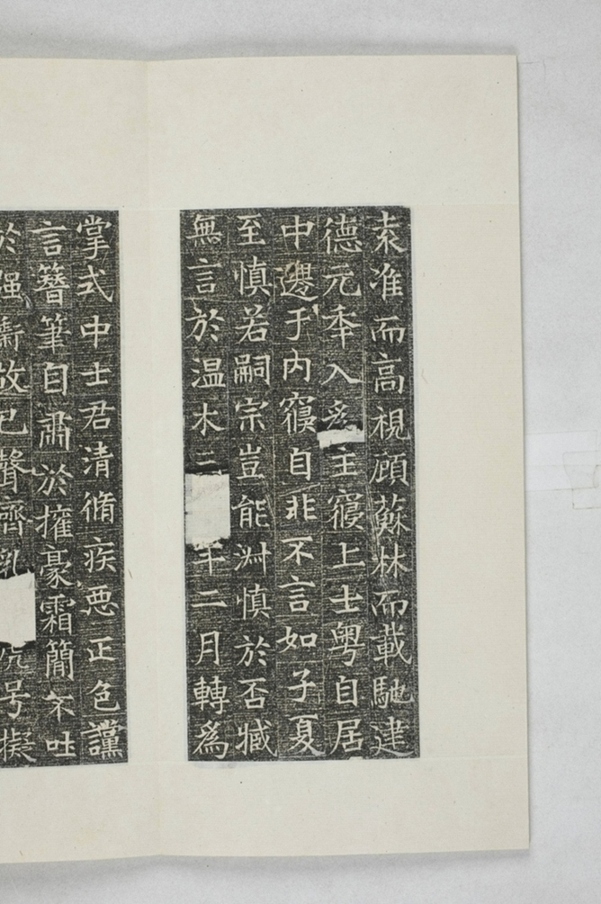 袁准而高視顧蘇林而載馳建
德元年入為主寢上士粵自居
中遷于內寢自非不言如子夏
至慎若嗣宗豈能淑慎於否臧
無言於温木二年二月轉為
掌式中士君清脩疾惡正色讜
言簪筆自肅於擁豪霜簡不吐
於强禦故已聲齊乳号擬